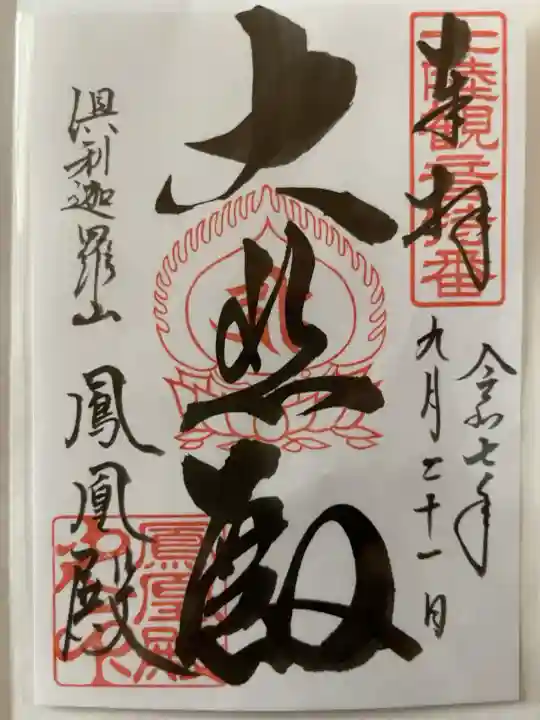 奉拝
北陸観音特番
令和七年
九月二十一日
大悲殿
倶利迦羅山 鳳凰殿
鳳凰殿